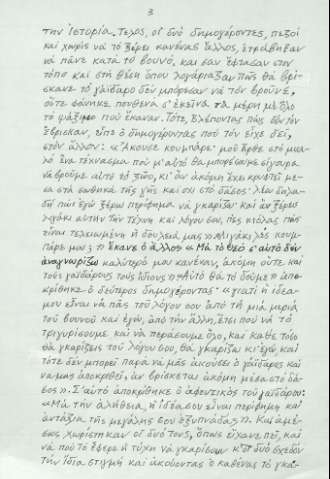 3
την ἱστορία. Τέλος, οἱ δυό δημογέροντες, πεζοί
καί χωρίς νά τό ξέρει κανένας ἄλλος, ἐτράβηξαν
νά πᾶνε κατά τό βουνό, καί σάν ἔφτασαν στόν
τόπο καί στή θέση ὅπου λογάριαζαν πῶς θά βρί-
σκανε τό γαΐδαρο δέν μπόρεσαν νά τόν βροῦνε,
οὔτε φάνηκε πουθενά σ' ἐκεῖνα τά μέρη μέ ὅλο
τό ψάξιμο πού ἔκαναν. Τότε, βλέποντας πώς δέν τόν
ἔβρισκαν, εἶπε ὁ δημογέροντας πού τόν εἶχε δεῖ,
στόν ἄλλον: «Ἄκουσε κουμπάρε· μοῦ ἦρθε στό μυα-
λό ἕνα τέχνασμα πού μ' αὐτό θά μπορέσουμε σίγουρα
νά βροῦμε αὐτό τό ζῶο, κι' ἄν ἀκόμη ἔχει κρυφτεῖ μέ-
σα στά σωθικά τῆς γῆς καί ὄχι στό δάσος· λέω δηλα-
δή πώς ἐγώ ξέρω περίφημα νά γκαρίζω· καί ἄν ξέρεις
λιγάκι αὐτήν τήν τέχνη καί λόγου σου, πές κιόλας πώς
εἶναι τελειωμένη ἡ δουλειά μας.» «Λιγάκι λές κουμ-
πάρε μου;» ἔκανε ὁ ἄλλος· «Μά τό Θεό σ' αὐτό δέν
ἀναγνωρίζω καλύτερό μου κανέναν, ἀκόμη οὔτε καί
τούς γαϊδάρους τούς ἴδιους». «Αὐτό θά τό δοῦμε» ἀπο-
κρίθηκε ὁ δεύτερος δημογέροντας· «γιατί ἡ ἰδέα
μου εἶναι νά πᾶς τοῦ λόγου σου ἀπό τή μιά μεριά
τοῦ βουνοῦ καί ἐγώ, ἀπό τήν ἄλλη, ἔτσι πού νά τό
τριγυρίσουμε καί νά περάσουμε ὅλο, καί κάθε τόσο
θά γκαρίζεις τοῦ λόγου σου, θά γκαρίζω κι' ἐγώ, καί
τότε δέν μπορεῖ παρά νά μᾶς ἀκούσει ὁ γάϊδαρος καί
νά μᾶς ἀποκριθεῖ, ἄν βρίσκεται ἀκόμη μέσα στό δά-
σος». Σ' αὐτό ἀποκρίθηκε ὁ ἀφεντικός τοῦ γαϊδάρου:
«Μά τήν ἀλήθεια, ἡ ἰδέα σου εἶναι περίφημη καί
ἀντάξια τῆς μεγάλης σου ἐξυπνάδας». Καί ἀμέ-
σως χωρίστηκαν οἱ δυό τους, ὅπως εἴχανε πεῖ, καί
νά πού τό ἔφερε ἡ τύχη νά γκαρίσουν κ' οἱ δυό σχεδόν
τήν ἴδια στιγμή καί ἀκούοντας ὁ καθένας τό γκά-